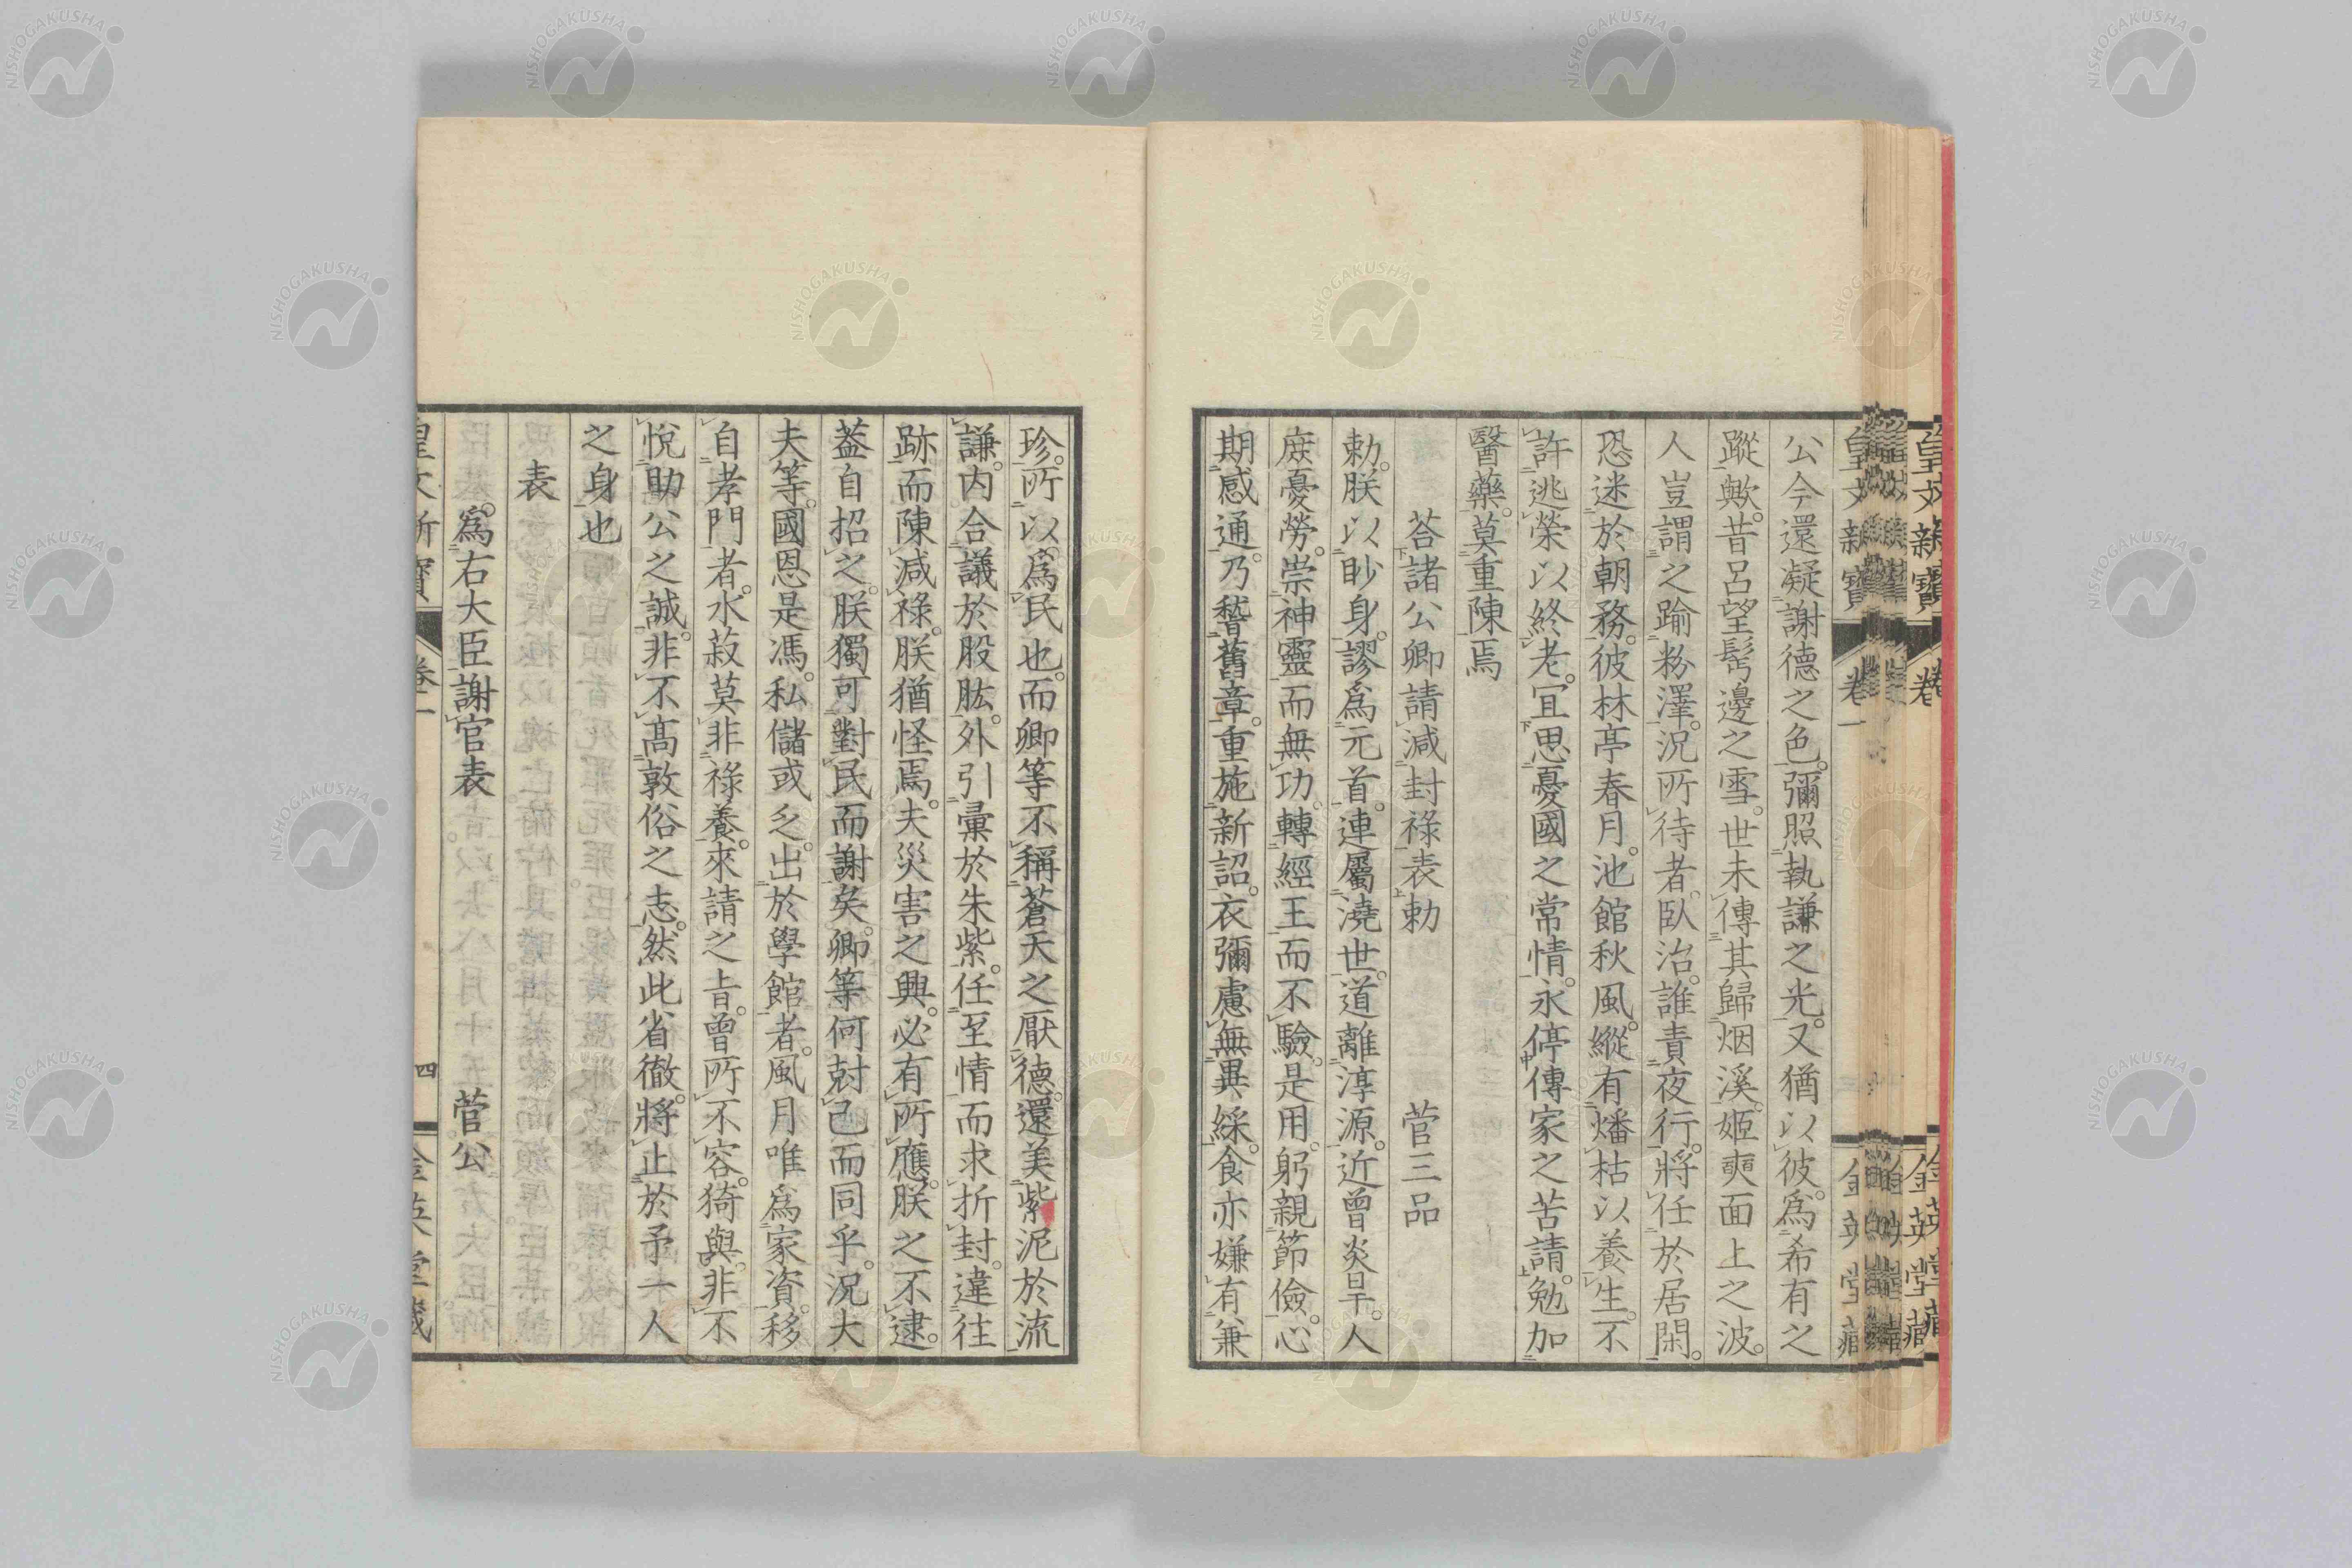 公今還凝謝德之色。彌照執謙之光。又猶以彼。爲希有之
蹤歟。昔呂望髩邊之雪。世未傳其歸烟溪。姬奭面上之波。
人豈謂之踰粉澤。況所待者。臥治。誰責夜行。將任於居閑。
恐迷於朝務。彼林亭春月。池館秋風。縱有燔枯以養生。不
許逃榮以終老。冝思憂國之常情。永停傳家之苦請。勉加
醫藥。莫重陳焉
荅諸公卿請減封祿表勅 菅三品
勅。朕以眇身。謬爲元首。連屬澆世。道離淳源。近曾炎旱。人
庶憂勞。崇神靈而無功。轉經王而不驗。是用。躬親節儉。心
期感通。乃嵆舊章。重施新詔。衣彌慮無異綵。食亦嫌有兼
珍。所以爲民也。而卿等不稱蒼天之厭德。還美紫泥於流
謙。内合議於股肱。外引彙於朱紫。任至情而求折封。違往
跡而陳減祿。朕猶怪焉。夫災害之興。必有所應。朕之不逮。
葢自招之。朕獨可對民而謝矣。卿等何尅己而同乎。況大
夫等。國恩是馮。私儲或乏。出於學館者。風月唯爲家資。移
自孝門者。水菽莫非祿養。來請之㫖。曾所不容。猗與。非不
悅助公之誠。非不髙敦俗之志。然此省徹。將止於予一人
之身也
表
爲右大臣謝官表 菅公
皇文新寶 卷一 四 金英堂藏
皇文新寶 卷一 金英堂藏